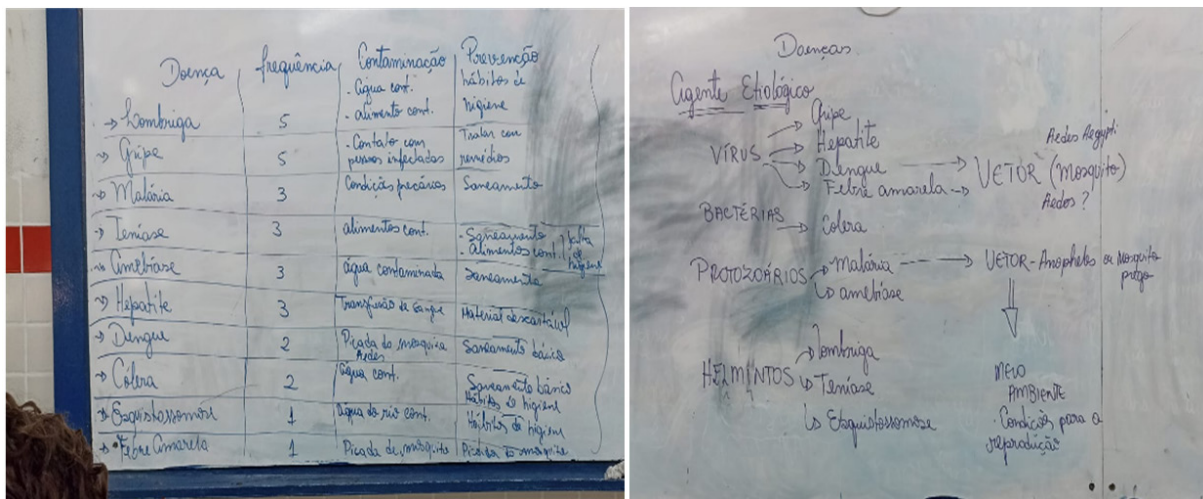 Doença frequência Contaminação Prevenção
→ Lombriga 5 - Água cont. - alimento cont. hábitos de higiene
→ Gripe 5 - Contato com pessoas infectadas Tratar com remédios
→ Malária 3 Condições precárias Saneamento
→ Teníase 3 alimentos cont. - Saneamento - Alimentos cont. falta de higiene
→ Amebíase 3 água contaminada Saneamento
→ Hepatite 3 Transfusão de sangue Material descartável
→ Dengue 2 Picada do mosquito Aedes Saneamento básico
→ Cólera 2 Água cont. Saneamento básico Hábitos de higiene
→ Esquistossomose 1 Água do rio cont. Hábitos de higiene
→ Febre Amarela 1 Picada de mosquito Picada do mosquito
Doenças
Agente Etiológico
VÍRUS → Gripe
→ Hepatite
→ Dengue → VETOR (Mosquito) Aedes Aegypti
→ Febre amarela → Aedes ?
BACTÉRIAS → Colera
PROTOZOÁRIOS → Malária → VETOR - Anopheles ou Mosquito prego
↳ amebíase
HELMINTOS → Lombriga
↳ Teníase
↳ Esquistossomose
MEIO
AMBIENTE
- Condições para a
reprodução